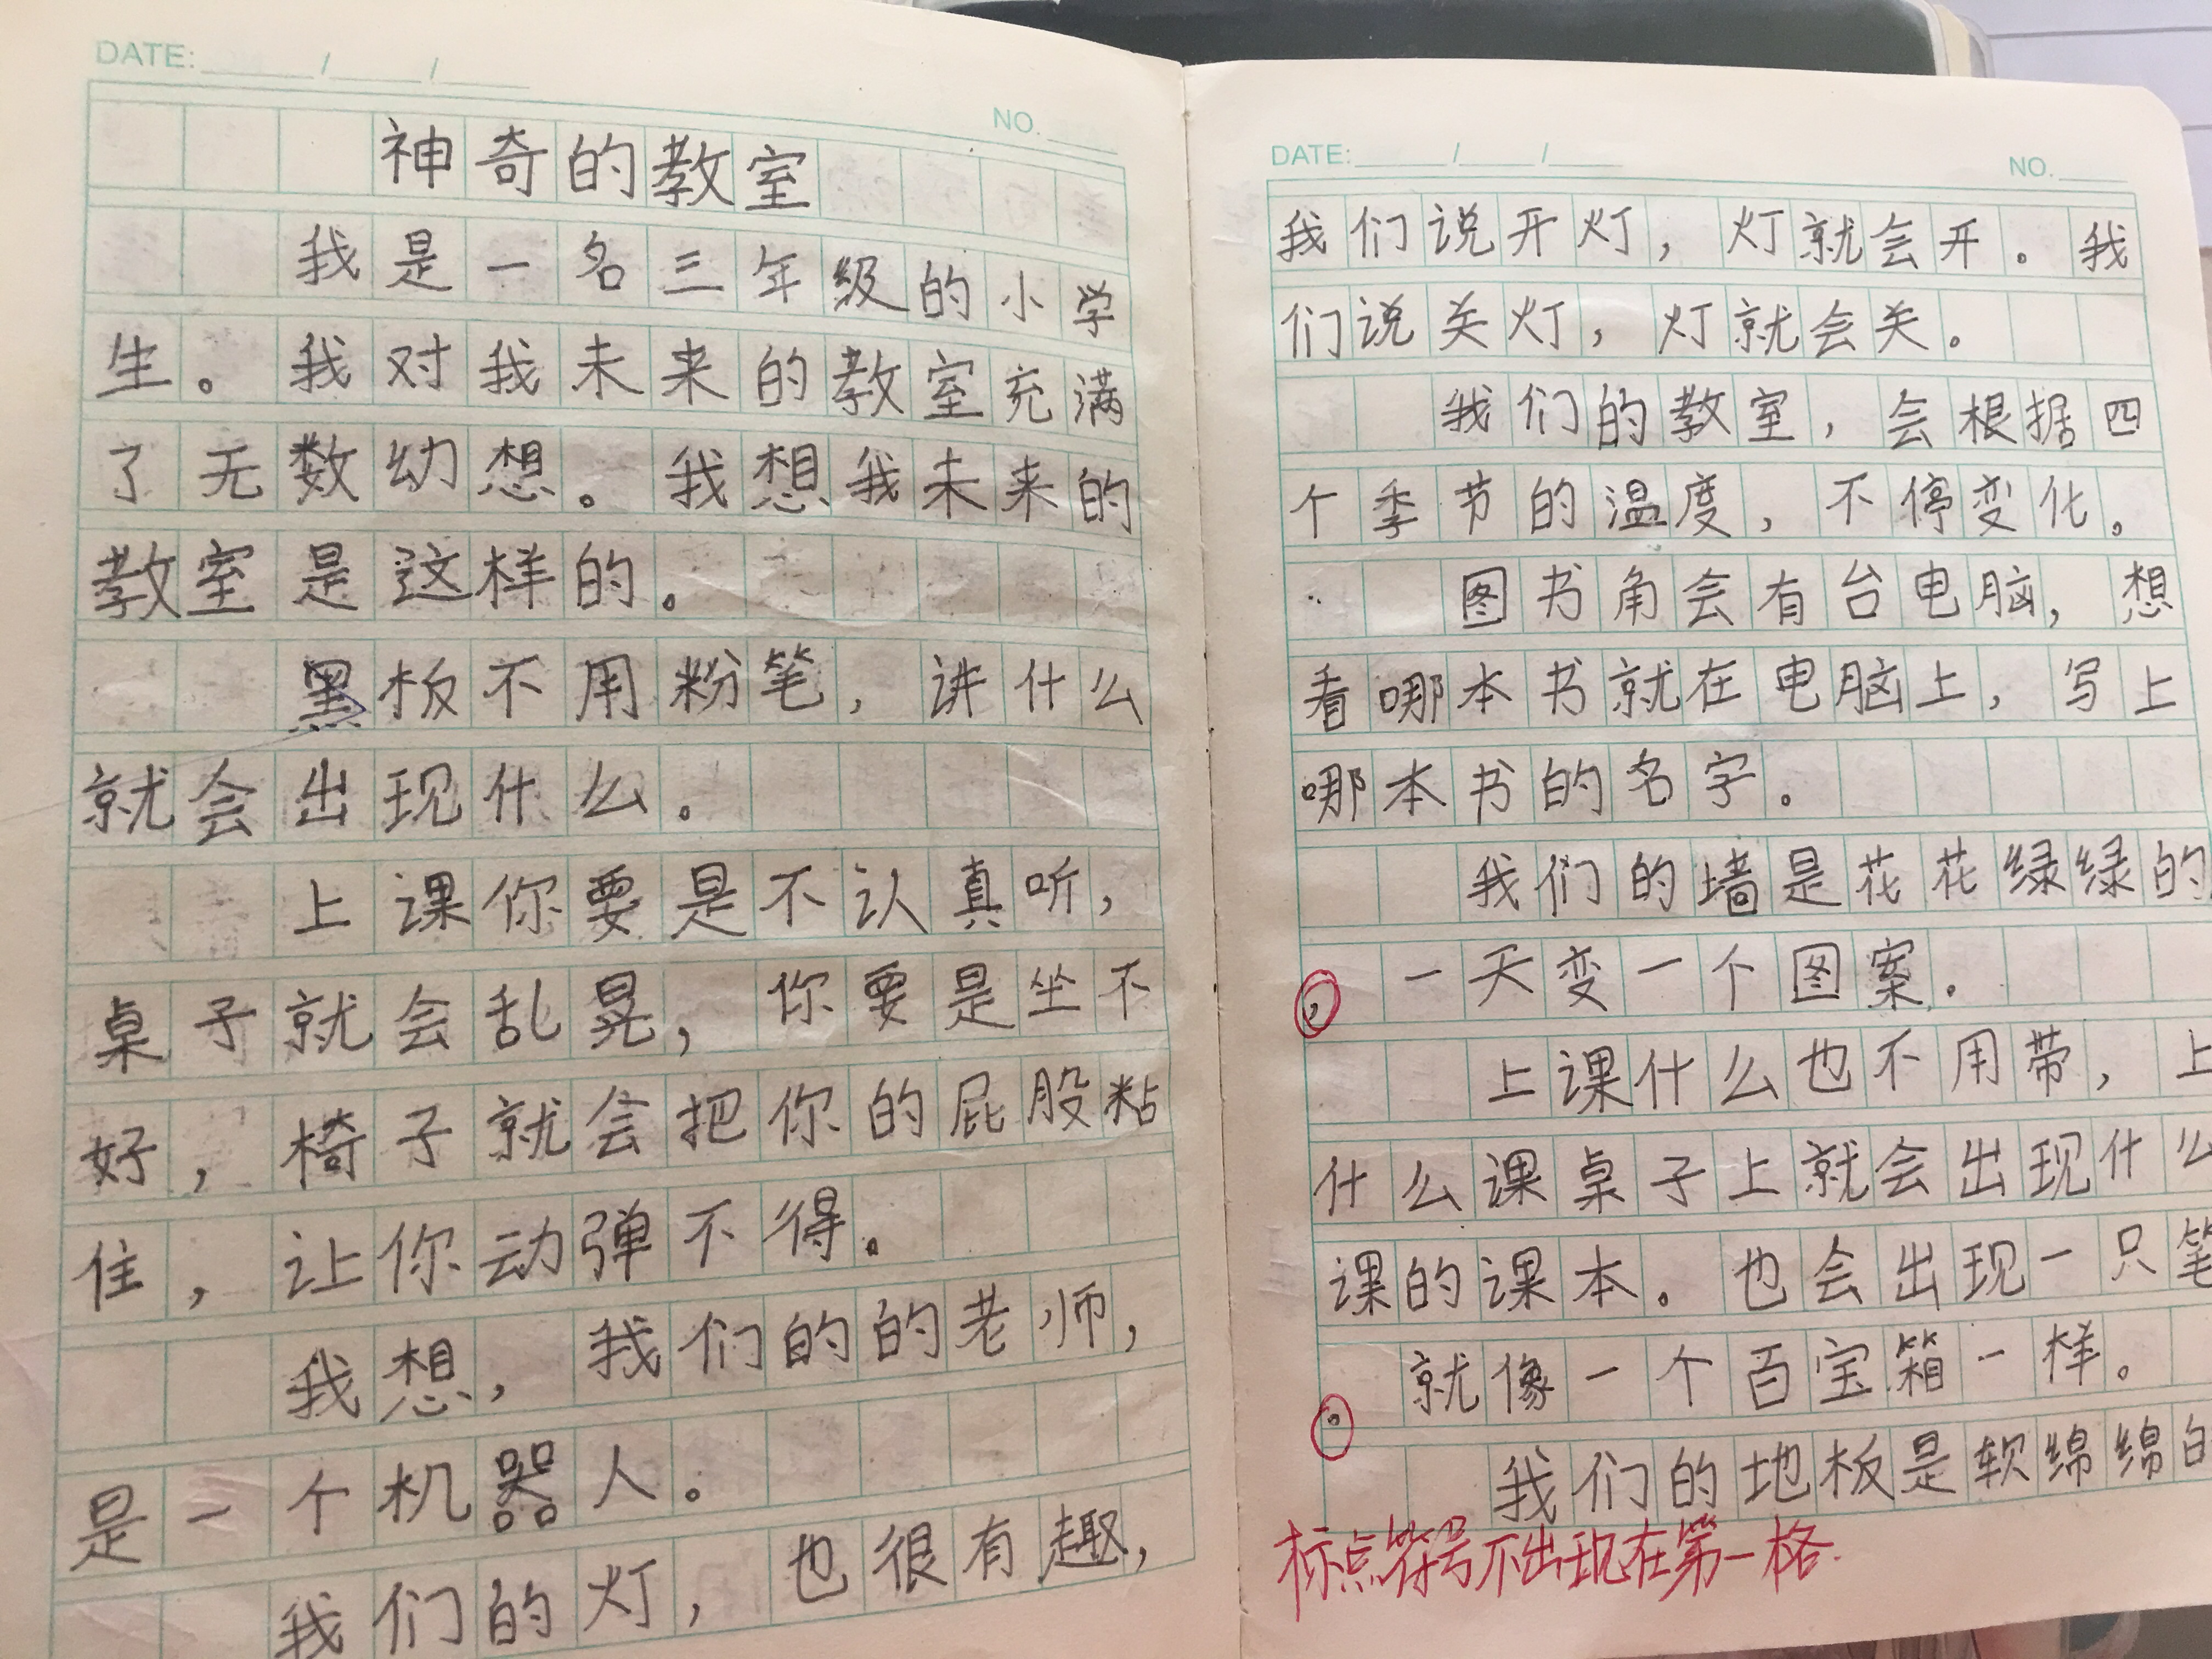 DATE: / /
NO.
神奇的教室
我是一名三年级的小学
生。我对我未来的教室充满
了无数幼想。我想我未来的
教室是这样的。
黑板不用粉笔，讲什么
就会出现什么。
上课你要是不认真听，
桌子就会乱晃，你要是坐不
好，椅子就会把你的屁股粘
住，让你动弹不得。
我想，我们的的老师，
是一个机器人。
我们的灯，也很有趣，
DATE: / /
NO.
我们说开灯，灯就会开。我
们说关灯，灯就会关。
我们的教室，会根据四
个季节的温度，不停变化。
图书角会有台电脑，想
看哪本书就在电脑上，写上
哪本书的名字。
我们的墙是花花绿绿的
，一天变一个图案。
上课什么也不用带，上
什么课桌子上就会出现什么
课的课本。也会出现一只笔
。就像一个百宝箱一样。
我们的地板是软绵绵的
标点符号不出现在第一格.